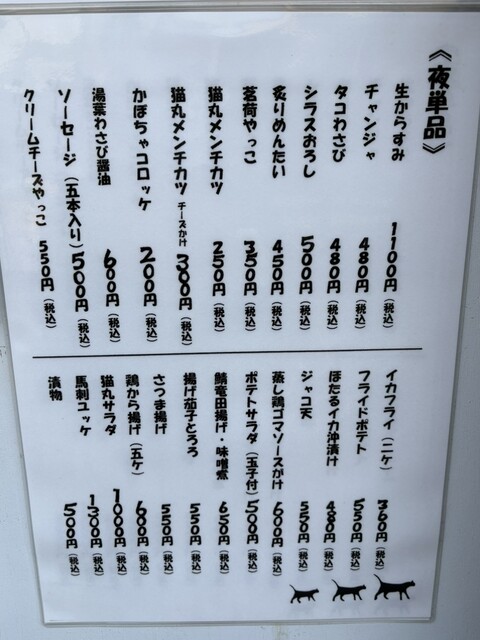 《夜単品》
生からすみ 1100円(税込)
チャンジャ 480円(税込)
タコわさび 480円(税込)
シラスおろし 500円(税込)
炙りめんたい 450円(税込)
茗荷やっこ 350円(税込)
猫丸メンチカツ 250円(税込)
猫丸メンチカツ チーズかけ 300円(税込)
かぼちゃコロッケ 200円(税込)
湯葉わさび醤油 600円(税込)
ソーセージ(五本入り) 500円(税込)
クリームチーズやっこ 550円(税込)
イカフライ(二ケ) 360円(税込)
フライドポテト 550円(税込)
ほたるイカ沖漬け 480円(税込)
ジャコ天 550円(税込)
蒸し鶏ゴマソースがけ 600円(税込)
ポテトサラダ(玉子付) 500円(税込)
鯖竜田揚げ・味噌煮 650円(税込)
揚げ茄子とろろ 550円(税込)
さつま揚げ 550円(税込)
鶏から揚げ(五ケ) 600円(税込)
猫丸サラダ 1000円(税込)
馬刺ユッケ 1300円(税込)
漬物 500円(税込)